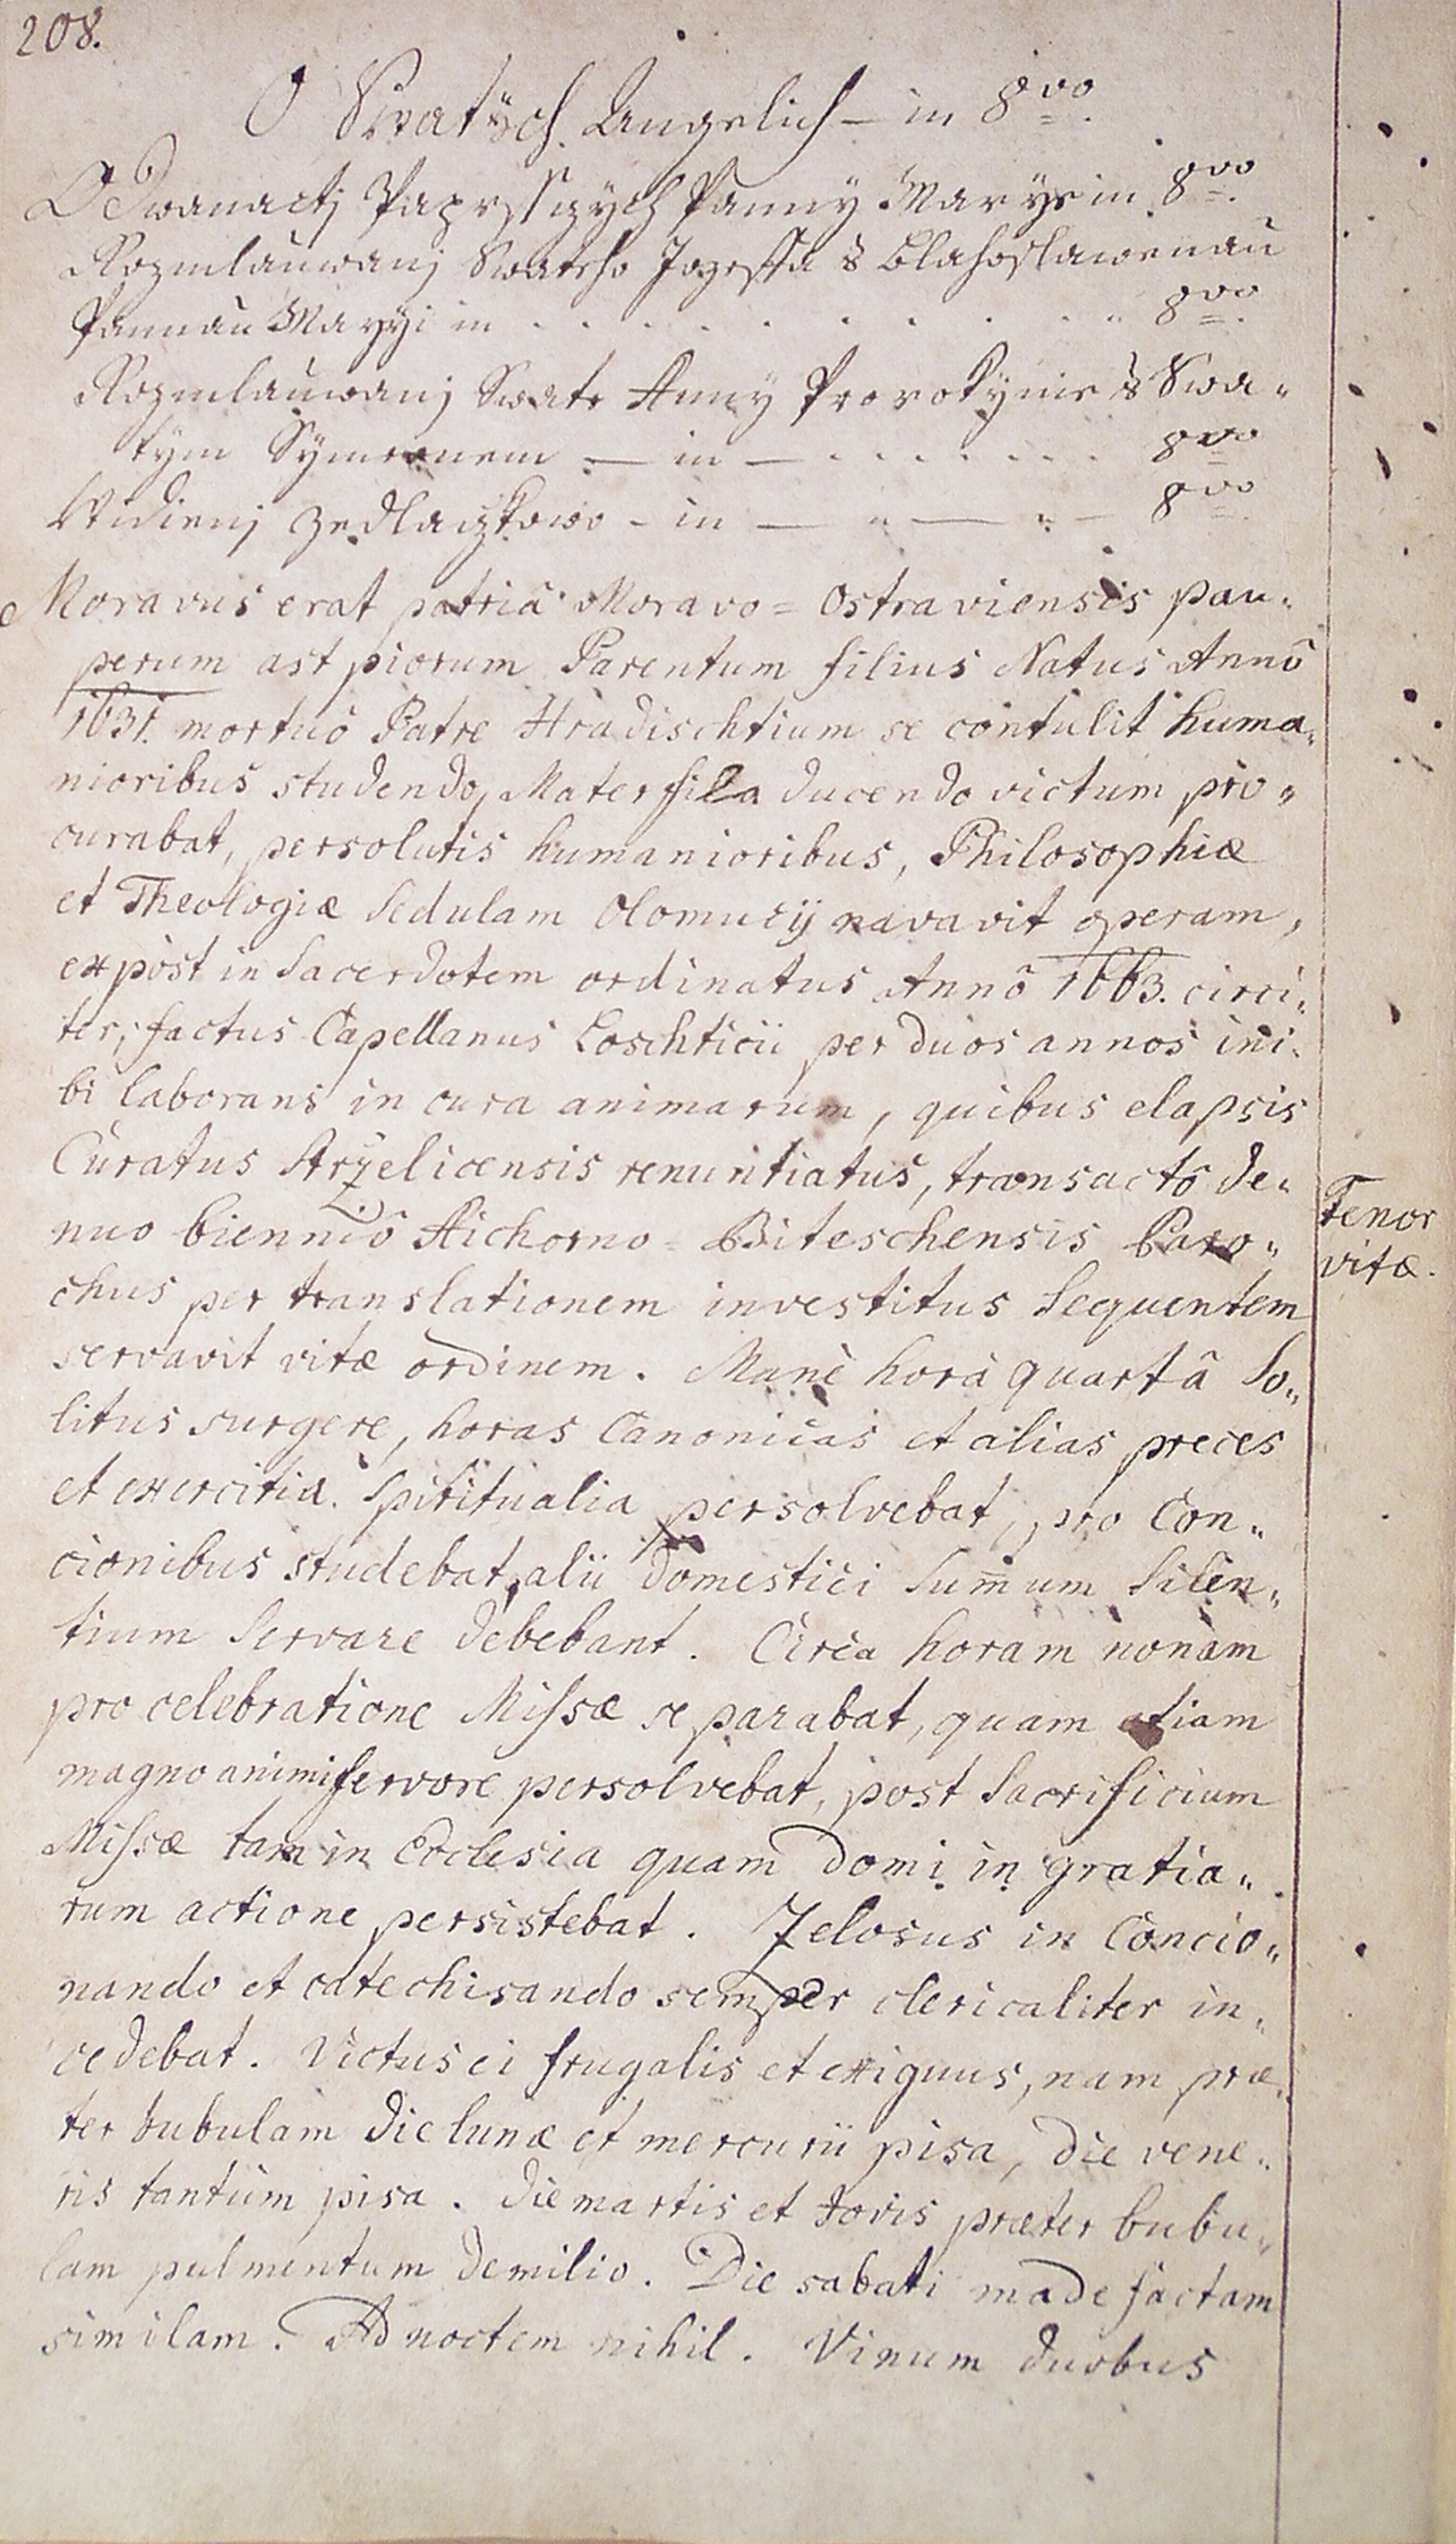 208.
O Swatých Angelich – in 8vo.
O Dwanacti Paprssczych Panny Marye in 8vo.
Rozmlauwanj Swateho Jozeffa s Blahoslawenau
Pannau Maryi in . . . . . . . . . 8vo.
Rozmlauwanj Swate Anny Prorokynie s Swa„
tým Symeonem — in — . . . . . . . 8vo
Widienj Zedlaczkowo – in — „ — „ — 8vo.
Moravus erat patriâ Moravo = Ostraviensis pau„
perum ast piorum Parentum filius Natus Annô
1631. mortuô Patre Hradischtium se contulit huma„
nioribus studendo, Mater fila ducendo victum pro„
curabat, persolutis humanioribus, Philosophiæ
et Theologiæ sedulam Olomucij navavit operam,
expost in Sacerdotem ordinatus Annô 1663. circi„
ter, factus Capellanus Loschticii per duos annos ini„
bi laborans in cura animarum, quibus elapsis
Curatus Strzelicensis renuntiatus, transactô de„
nuo bienniô Aichorno = Biteschensis Paro„
chus per translationem investitus sequentem
servavit vitæ ordinem. Manè horâ quartâ so„
litus surgere, horas Canonicas et alias preces
et exercitia Spiritualia persolvebat, pro Con„
cionibus studebat, alii domestici sum̄um silen„
tium servare debebant. Circa horam nonam
pro celebratione Missæ se parabat, quam etiam
magno animi fervore persolvebat, post Sacrificium
Missæ tam in Ecclesia quam domi in gratia„
rum actione persistebat. Zelosus in Concio„
nando et catechisando semper clericaliter in„
cedebat. Victus ei frugalis et exiguus, nam præ„
ter bubulam die lunæ et mercurii pisa, die vene„
ris tantùm pisa. Die martis et Jovis præter bubu„
lam pulmentum de milio. Die sabati madefactam
similam. Ad noctem nihil. Vinum duobus
Tenor
vitæ.